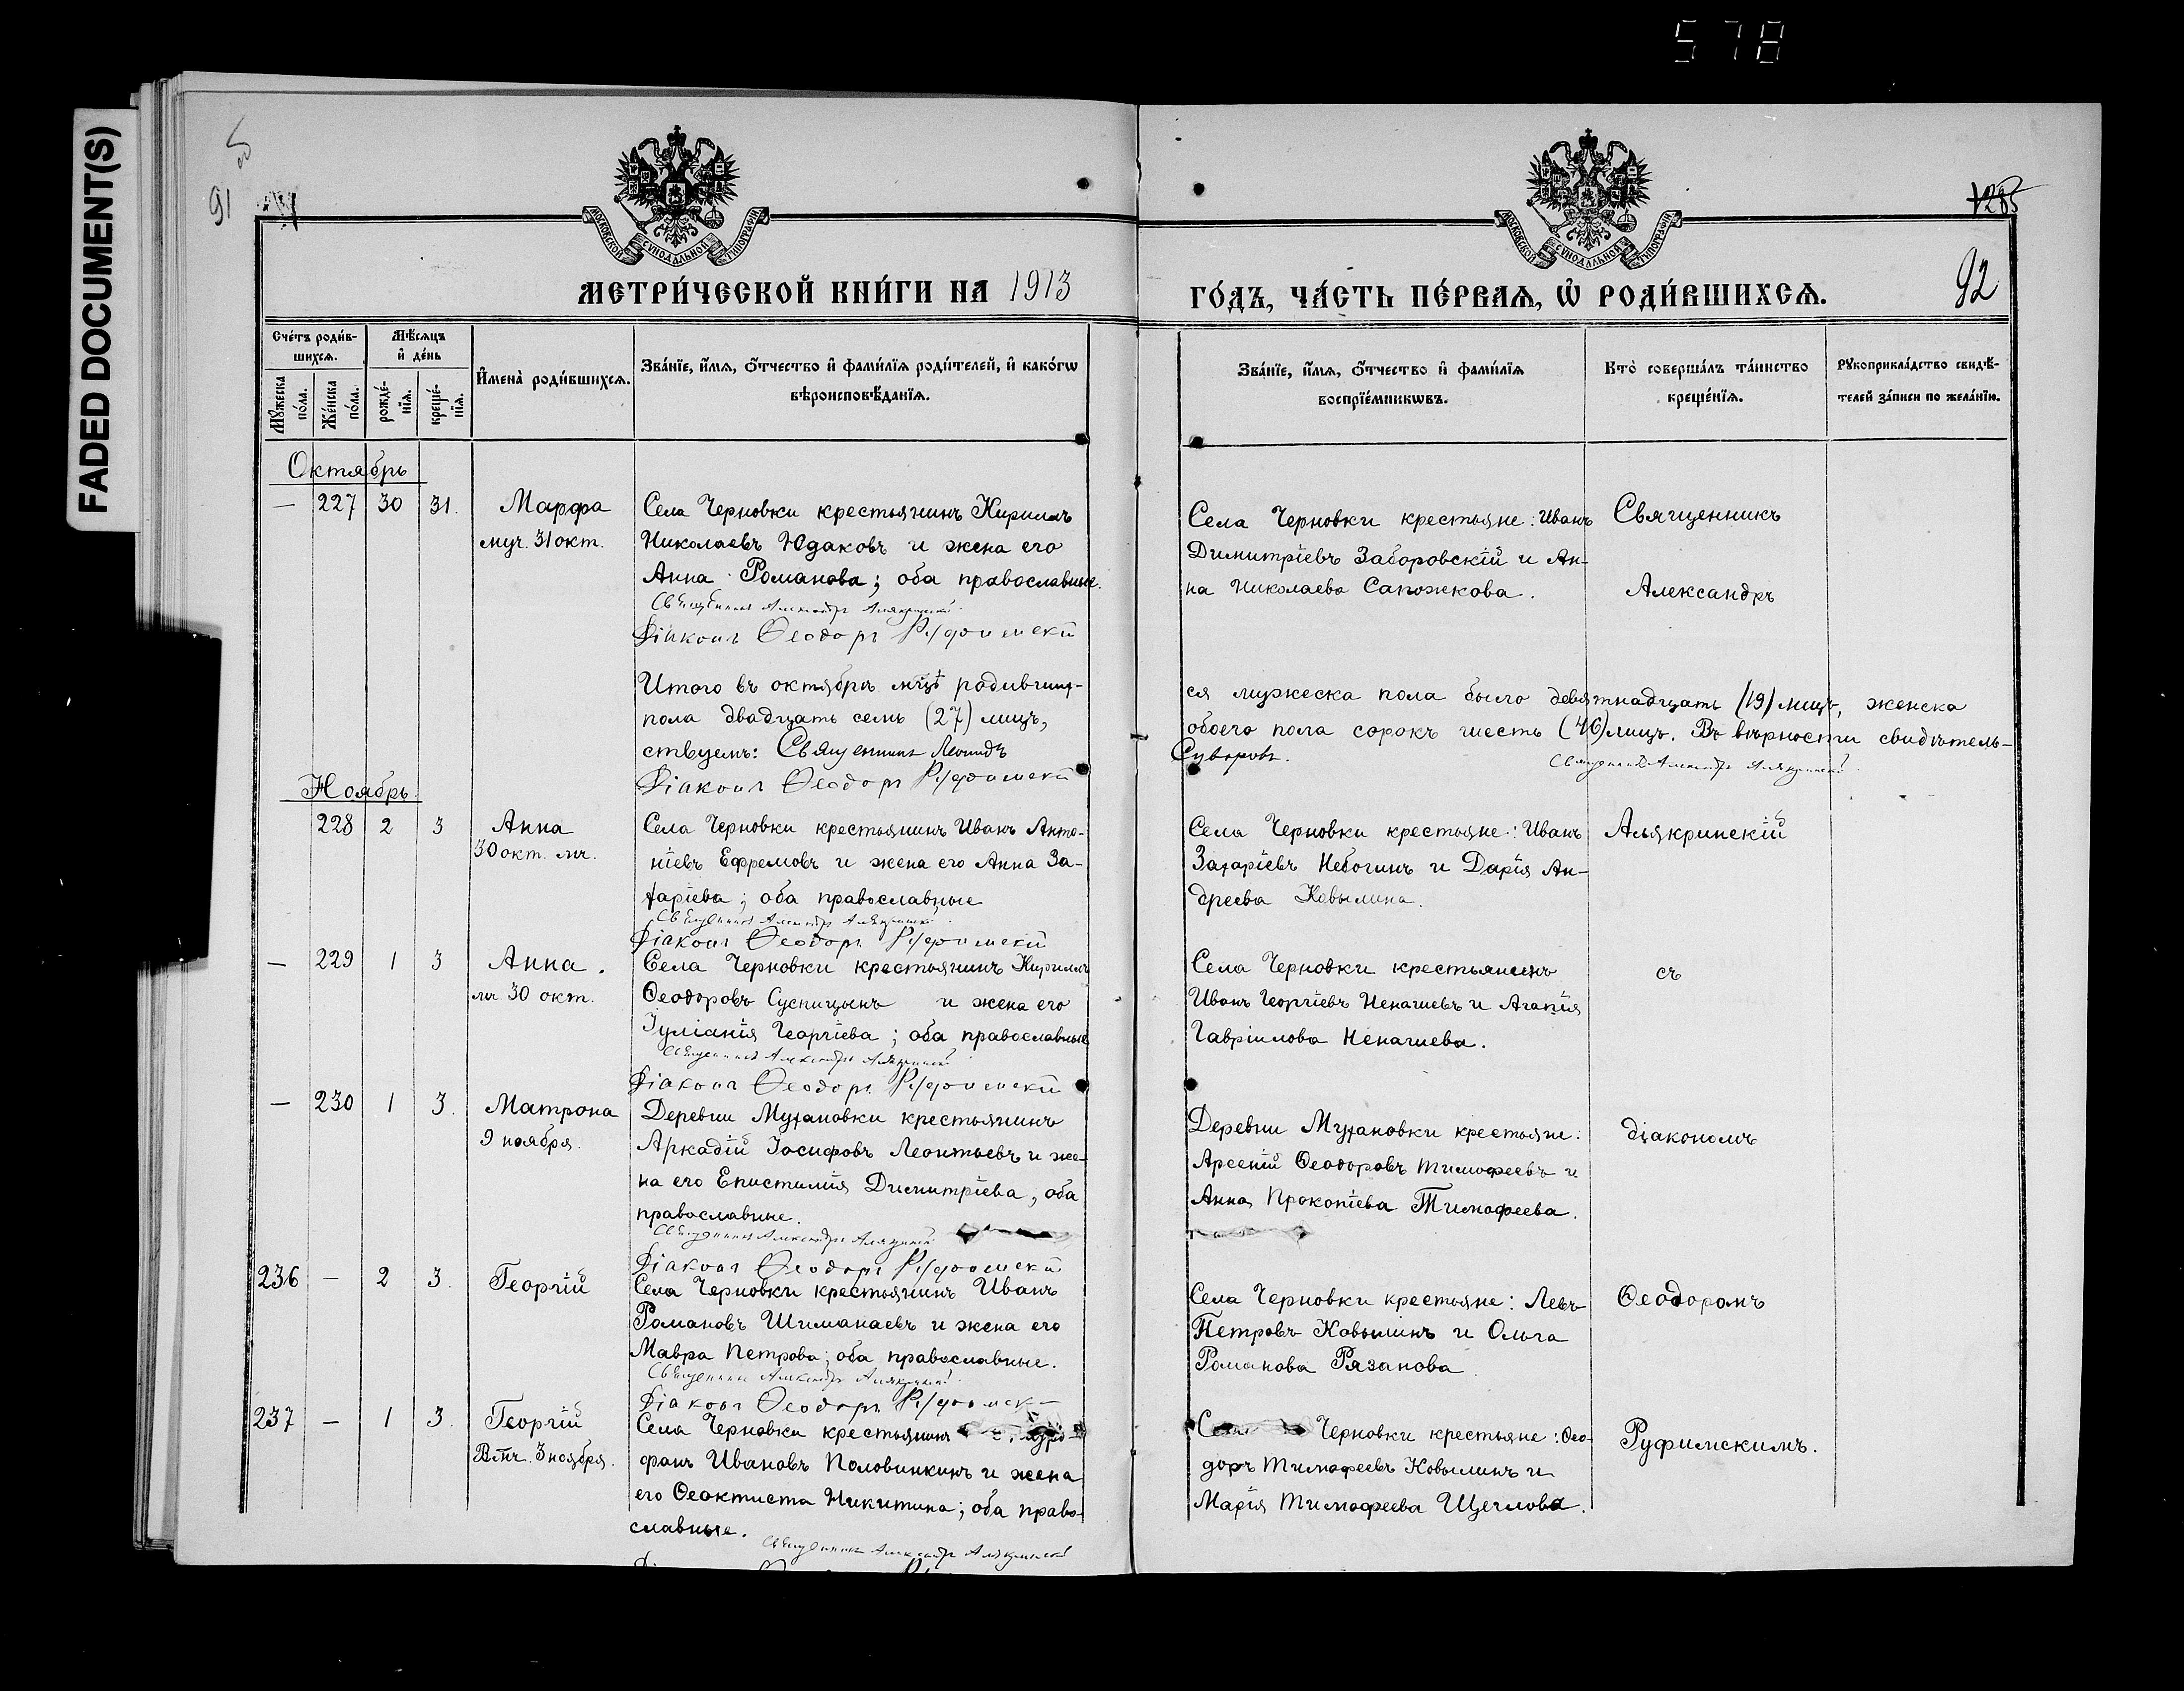 578
FADED DOCUMENT(S)
91
1285
92
МОСКОВСКОЙ СѴНОДАЛЬНОЙ ТИПОГРАФІИ
МОСКОВСКОЙ СѴНОДАЛЬНОЙ ТИПОГРАФІИ
МЕТРИ́ЧЕСКОЙ КНИ́ГИ НА 1913
ГО́ДЪ, ЧА́СТЬ ПЕ́РВАѦ, Ѽ РОДИ́ВШИХСѦ.
Сче́тъ роди́в-
шихсѧ.
Мꙋ́жеска
по́ла.
Же́нска
по́ла.
Мѣ́сѧцъ
и҆ де́нь
рожде́-
нїѧ.
креще́-
нїѧ.
И҆мена̀ роди́вшихсѧ.
Зва́нїе, и҆́мѧ, ѻ҆́тчество и҆ фами́лїѧ роди́телей, и҆ како́гѡ
вѣроисповѣ́данїѧ.
Зва́нїе, и҆́мѧ, ѻ҆́тчество и҆ фами́лїѧ
воспрїе́мникѡвъ.
Кто̀ соверша́лъ та́инство
креще́нїѧ.
Рꙋкоприкла́дство свидѣ́-
телей за́писи по жела́нїю.
Октябрь
— 227 30 31. Марфа
муч. 31 окт.
Села Черновки крестьянинъ Кириллъ
Николаевъ Юдаковъ и жена его
Анна Романова; оба православные.
Священникъ Александръ Алякринскій
Діаконъ Ѳеодоръ Руфимскій
Села Черновки крестьяне: Иванъ
Димитріевъ Заборовскій и Ан-
на Николаева Сапожкова.
Священникъ
Александръ
Итого въ октябрѣ мцѣ родивших-
пола двадцать семь (27) лицъ,
ствуемъ: Священникъ Леонидъ
Діаконъ Ѳеодоръ Руфимскій
ся мужеска пола было девятнадцать (19) лицъ, женска
обоего пола сорокъ шесть (46) лицъ. Въ вѣрности свидѣтель-
Суворовъ.
Священникъ Александръ Алякринскій
Ноябрь
228 2 3 Анна
30 окт. мч.
Села Черновки крестьянинъ Иванъ Анто-
ніевъ Ефремовъ и жена его Анна За-
харіева; оба православные
Священникъ Александръ Алякринскій
Діаконъ Ѳеодоръ Руфимскій
Села Черновки крестьяне: Иванъ
Захаріевъ Небогинъ и Дарія Ан-
дреева Ковылина.
Алякринскій
— 229 1 3 Анна.
мч. 30 окт.
Села Черновки крестьянинъ Кириллъ
Ѳеодоровъ Суспицынъ и жена его
Іуліанія Георгіева; оба православные
Священникъ Александръ Алякринскій
Діаконъ Ѳеодоръ Руфимскій
Села Черновки крестьянинъ
Иванъ Георгіевъ Ненашевъ и Агапія
Гавріилова Ненашева.
съ
— 230 1 3. Матрона
9 ноября.
Деревни Мухановки крестьянинъ
Аркадій Іосифовъ Леонтьевъ и же-
на его Епистимія Димитріева; оба
православные.
Священникъ Александръ Алякринскій
Діаконъ Ѳеодоръ Руфимскій
Деревни Мухановки крестьяне:
Арсеній Ѳеодоровъ Тимофеевъ и
Анна Прокопіева Тимофеева.
діакономъ
236 — 2 3. Георгій
Села Черновки крестьянинъ Иванъ
Романовъ Шиманаевъ и жена его
Мавра Петрова; оба православные.
Священникъ Александръ Алякринскій
Діаконъ Ѳеодоръ Руфимск
Села Черновки крестьяне: Левъ
Петровъ Ковылинъ и Ольга
Романова Рязанова.
Ѳеодоромъ
237 — 1 3. Георгій
Вмч. 3 ноября.
Села Черновки крестьянинъ
фанъ Ивановъ Половинкинъ и жена
его Ѳеоктиста Никитина; оба право-
славные.
Священникъ Александръ Алякринскій
Черновки крестьяне: Ѳео-
доръ Тимофеевъ Ковылинъ и
Марія Тимофеева Щеглова.
Руфимскимъ.